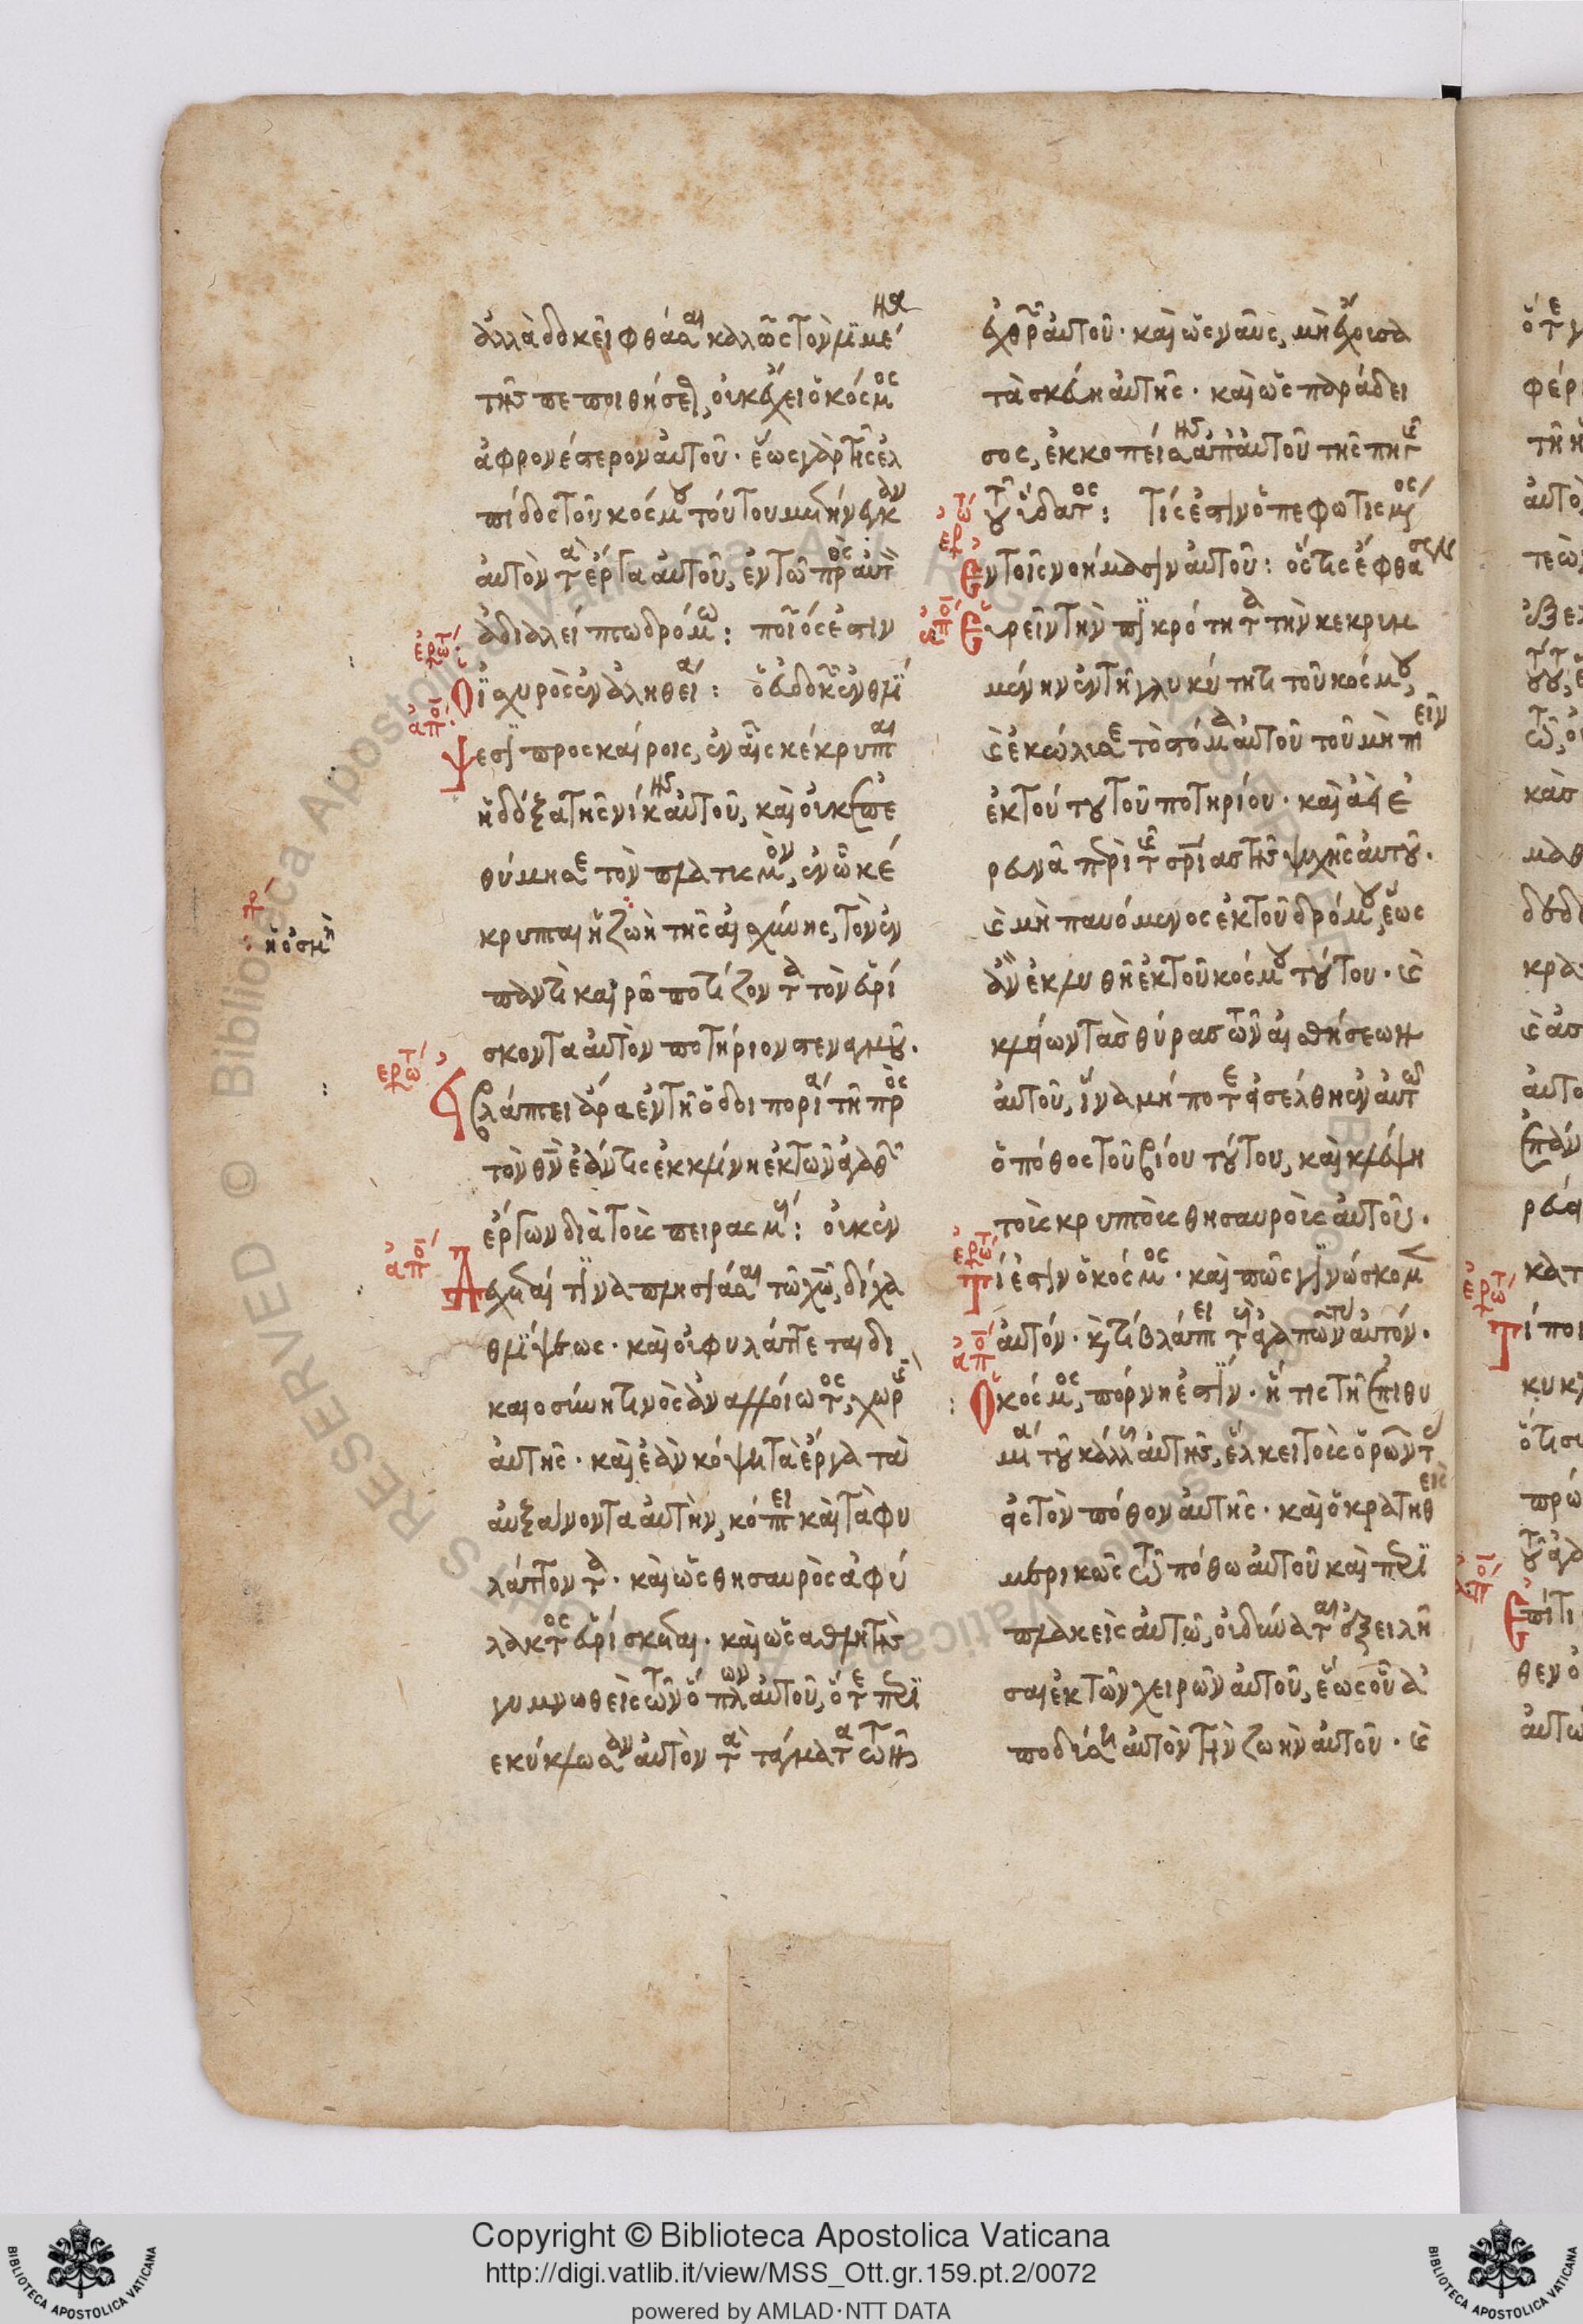 ἀλλὰ δοκεῖ φθάσαι καλῶς τὸν λιμένα
τῆς πεποιθήσεως, οὐκ ἔχει ὁ κόσμος
ἀφρονέστερον αὐτοῦ· ἕως γὰρ τῆς ἐλ
πίδος τοῦ κόσμου τούτου μὴ ἐν
αὐτὸν τὰ ἔργα αὐτοῦ, ἐν τῶ πρὸς αὐτὸν
ἀδιαλείπτω δρόμω: ποῖός ἐστιν
ἐρώτ
ὁ ἰσχυρὸς ἐν ἀληθεία: ὁ εὐδοκῶν ἐν θλί
ἀπό
ψεσι προσκαίροις, ἐν αἷς κέκρυπται
ἡ δόξα τῆς νίκης αὐτοῦ, καὶ οὐκ ἐπε
θύμησε τὸν πλατυσμόν, ἐν ὧ κέ
κρυπται ἡ ζωὴ τῆς αἰσχύνης, τὸν ἐν
ἡ ὀσμὴ
παντὶ καιρῶ ποτίζοντα τὸν εὑρί
σκοντα αὐτὸν ποτήριον στεναγμοῦ.
ἐρώτ
Βλάπτει ἄρα ἐν τῆ ὁδοιπορία τῆ πρὸς
τὸν θν ἐάν τις ἐκκλίνη ἐκ τῶν ἀγαθῶν
ἔργων διὰ τοὺς πειρασμούς: οὐκ ἐν
ἀπό
δέχεται τινα πλησιάσαι τῶ χω, δίχα
θλίψεως· καὶ οὐ φυλάττεται δι
καιοσύνη τινὸς ἀναλλοίωτος, χωρὶς
αὐτῆς· καὶ ἐὰν κόψη τὰ ἔργα τὰ
αὐξαίνοντα αὐτὴν, κόπτει καὶ τὰ φυ
λάττοντα· καὶ ὡς θησαυρὸς ἀφύ
λακτος εὑρίσκεται· καὶ ὡς ἀθλητὴς
γυμνωθεὶς τῶν ὅπλων αὐτοῦ, ὅτε περι
εκύκλωσαν αὐτὸν τὰ τάγματα τῶν
ἐχθρῶν αὐτοῦ· καὶ ὡς ναῦς, μὴ ἔχουσα
τὰ σκεύη αὐτῆς· καὶ ὡς παράδει
σος, ἐκκοπείσης ἀπ' αὐτοῦ τῆς πηγῆς
τοῦ ὕδατος: τίς ἐστιν ὁ πεφωτισμένος
ἐρώτ
ἐν τοῖς νοήμασιν αὐτοῦ: ὅστις ἔφθασεν
ἀπό
εὑρεῖν τὴν πικρότητα τὴν κεκρυμ
μένην ἐν τῆ γλυκύτητι τοῦ κόσμου,
καὶ ἐκώλυσε τὸ στόμα αὐτοῦ τοῦ μὴ πιεῖν
ἐκ τούτου τοῦ ποτηρίου· καὶ ἀεὶ ἐ
ρευνᾶ περὶ τῆς σωτηρίας τῆς ψυχῆς αὐτοῦ.
καὶ μὴ παυόμενος ἐκ τοῦ δρόμου, ἕως
ἂν ἐκλυθῆ ἐκ τοῦ κόσμου τούτου. καὶ
κλείων τὰς θύρας τῶν αἰσθήσεων
αὐτοῦ, ἵνα μήποτε εἰσέλθη ἐν αὐτῶ
ὁ πόθος τοῦ βίου τούτου, καὶ κλέψη
τοὺς κρυπτοὺς θησαυροὺς αὐτοῦ.
ἐρώτ
Τί ἐστιν ὁ κόσμος· καὶ πῶς γινώσκομεν
αὐτόν· καὶ τί βλάπτει τοὺς ἀγαπῶντας αὐτόν.
ἀπό
Ὁ κόσμος, πόρνη ἐστίν· ἥτις τῆ ἐπιθυ
μία τοῦ κάλλους αὐτῆς, ἕλκει τοὺς ὁρῶντας
εἰς τὸν πόθον αὐτῆς· καὶ ὁ κρατηθεὶς
μερικῶς τῶ πόθω αὐτοῦ καὶ περι
πλακεὶς αὐτῶ, οὐ δύναται ἐξειλῆ
σαι ἐκ τῶν χειρῶν αὐτοῦ, ἕως οὗ ἀ
ποδύση αὐτὸν τὴν ζωὴν αὐτοῦ· καὶ
Copyright © Biblioteca Apostolica Vaticana
http://digi.vatlib.it/view/MSS_Ott.gr.159.pt.2/0072
powered by AMLAD·NTT DATA
BIBLIOTECA APOSTOLICA VATICANA
BIBLIOTECA APOSTOLICA VATICANA